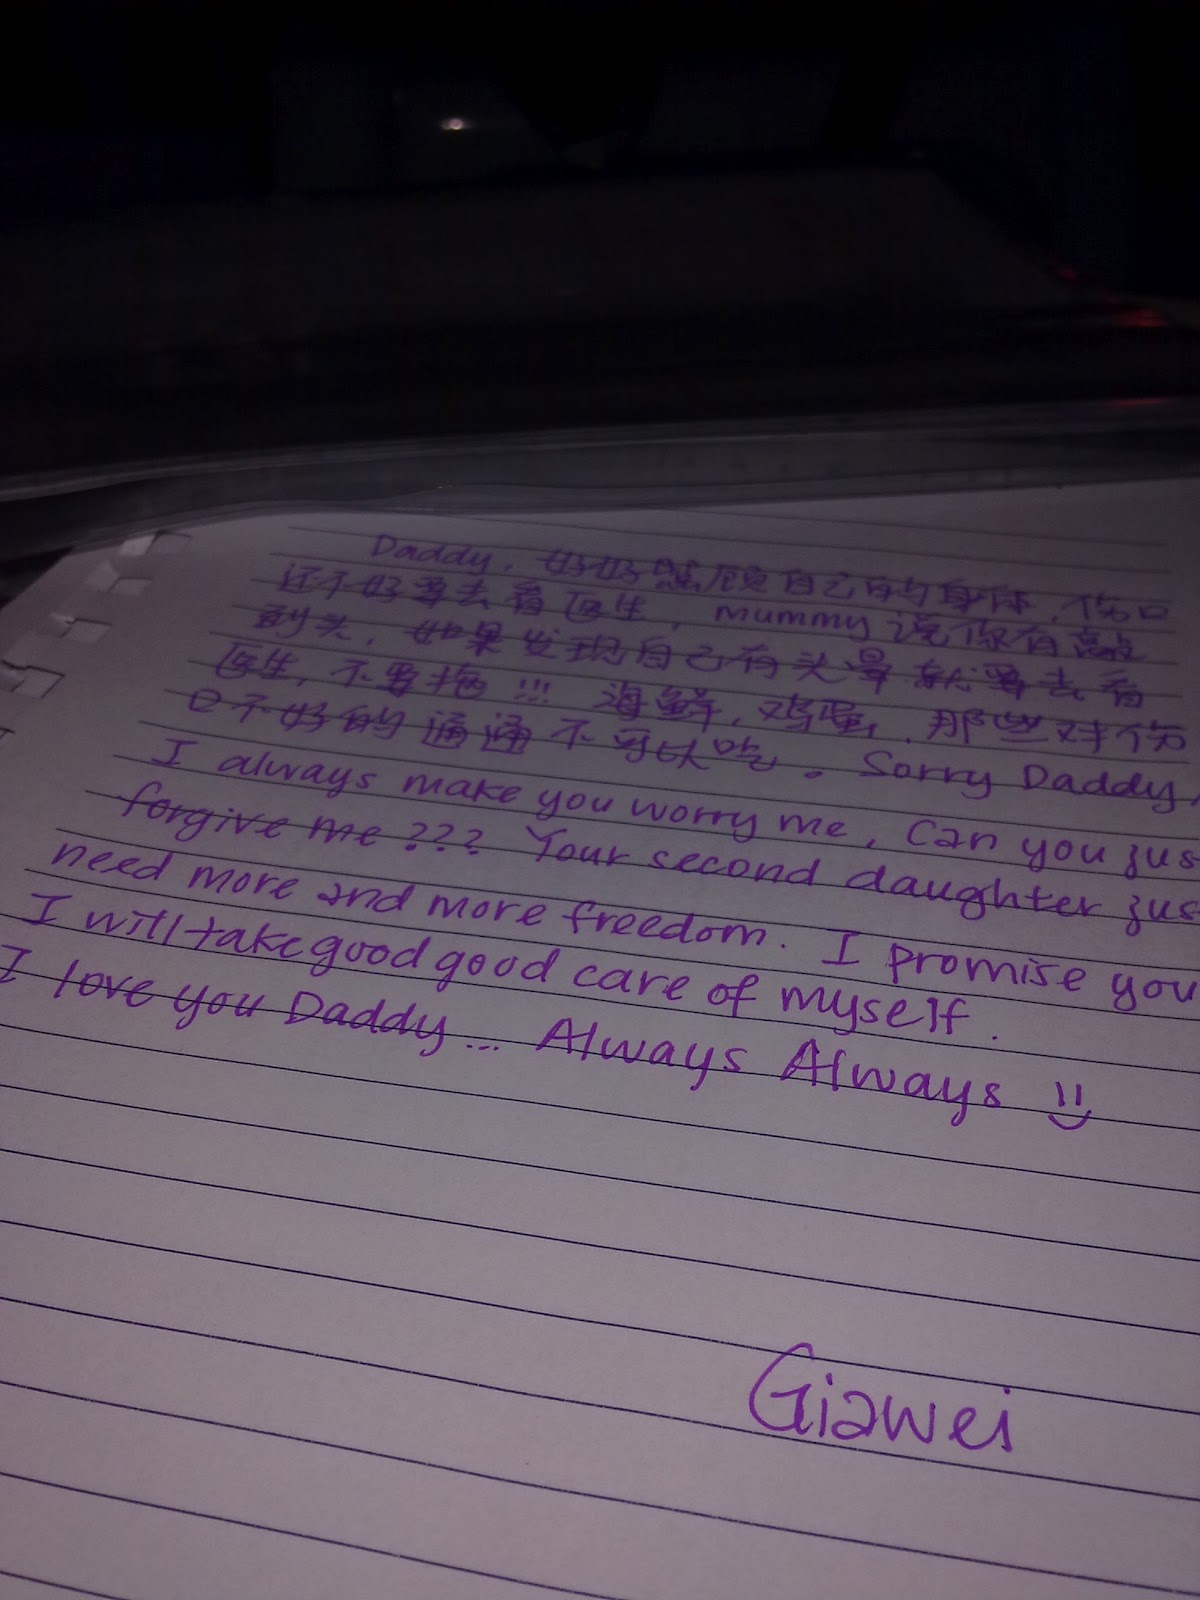 Daddy, 好好照顾自己的身体, 伤口
还不好要去看医生, mummy说你有敲
到头, 如果发现自己有头晕就要去看
医生, 不要拖!!! 海鲜, 鸡蛋, 那些对伤
口不好的通通不可以吃。Sorry Daddy,
I always make you worry me, Can you jus
forgive me ??? Your second daughter jus
need more and more freedom. I promise you
I will take good good care of myself.
I love you Daddy... Always Always
Giawei